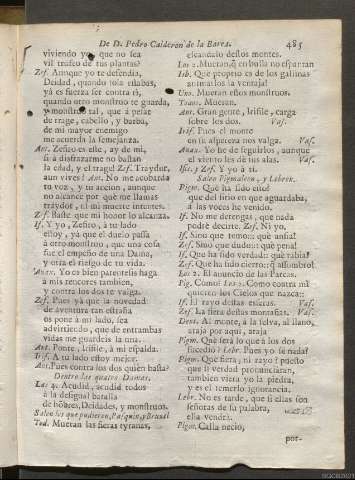 De D. Pedro Calderon de la Barca. 485
viviendo yo, que no sea
vil trofeo de tus plantas?
Zef. Aunque yo te defendia,
Deidad, quando sola estabas,
yà es fuerza ser contra tì,
quando otro monstruo te guarda,
y monstruo tal, que à pesar
de trage, cabello, y barba,
de mi mayor enemigo
me acuerda la semejanza.
Ant. Zefiro es este, ay de mi,
si à disfrazarme no bastan
la edad, y el trage! Zef. Traydor,
aun vives? Ant. No me acobarda
tu voz, y tu accion, aunque
no alcance por què me llamas
traydor, el mi muerte intentaste.
Zef. Baste que mi honor lo alcanza.
If. Y yo, Zefiro, à tu lado
estoy, yà que el duelo passa
à otro monstruo, que una cosa
fue el empeño de una Dama,
y otra el riesgo de tu vida.
Anax. Yo es bien parentesis haga
à mis rencores tambien,
y contra los dos te valga.
Zef. Pues yà que la novedad
de aventura tan estraña
os pone à mi lado, sea
advirtiendo, que de entrambas
vidas me guardeis la una.
Ant. Ponte, Irifile, à mi espalda.
Irif. A tu lado estoy mejor.
Ant. Pues contra los dos quien basta?
Dentro las quatro Damas.
Las 4. Acudid, acudid todos
à la desigual batalla
de hõbres, Deidades, y monstruos.
Salen los que pudieren, Pasquin, y Brunel
Tod. Mueran las fieras tyranas,
escandalo destos montes.
Los 2. Mueran, q̃ en bulla no espantan
Lib. Que proprio es de los gallinas
animarlos la ventaja!
Uno. Mueran estos monstruos.
Todos. Mueran.
Ant. Gran gente, Irifile, carga
sobre los dos. Vas.
Irif. Pues el monte
en su aspereza nos valga. Vas.
Anax. Yo he de seguirlos, aunque
el viento les dè sus alas. Vas.
Ife. y Zef. Y yo à ti.
Salen Pigmaleon, y Lebron.
Pigm. Què ha sido esto?
que del sitio en que aguardaba,
à los voces he venido.
If. No me detengas, que nada
podrè decirte. Zef. Ni yo,
If. Sino que temo:: què ansia!
Zef. Sino que dudo:: què pena!
If. Que ha sido verdad:: què rabia!
Zef. Què ha sido cierto:: q̃ assombro!
Los 2. El anuncio de las Parcas.
Pig. Como? Los 2. Como contra mi
quieren los Cielos que nazca::
If. El rayo destas esferas. Vas.
Zef. La fiera destas montañas. Vas.
Dent. Al monte, à la selva, al llano,
ataja por aqui, ataja
Pigm. Què serà lo que à los dos
sucediò? Lebr. Pues yo sè nada?
Pigm. Què fiera, ni rayo? puesto
que si verdad pronunciaran,
tambien viera yo la piedra,
y es el temerlo ignorancia.
Lebr. No es tarde, que si ellas son
señoras de su palabra,
ella vendrà.
Pigm. Calla necio,
por-